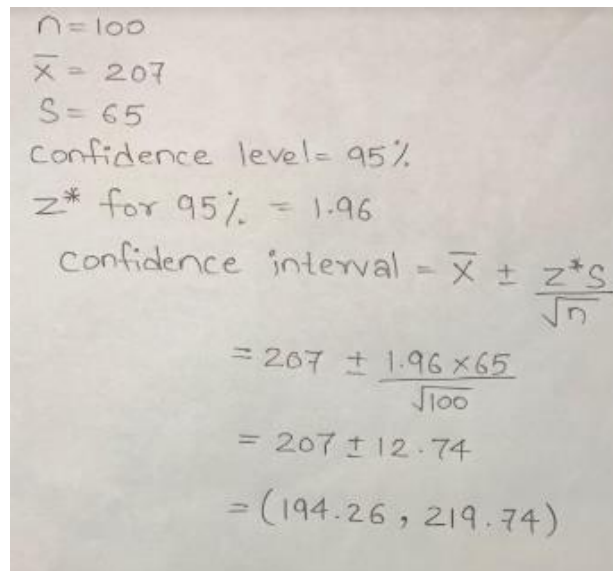 n=100
x̄ = 207
S= 65
Confidence level= 95%
z* for 95% = 1.96
Confidence interval = x̄ ± z*S/√n
= 207 ± 1.96×65/√100
= 207 ± 12.74
= (194.26, 219.74)